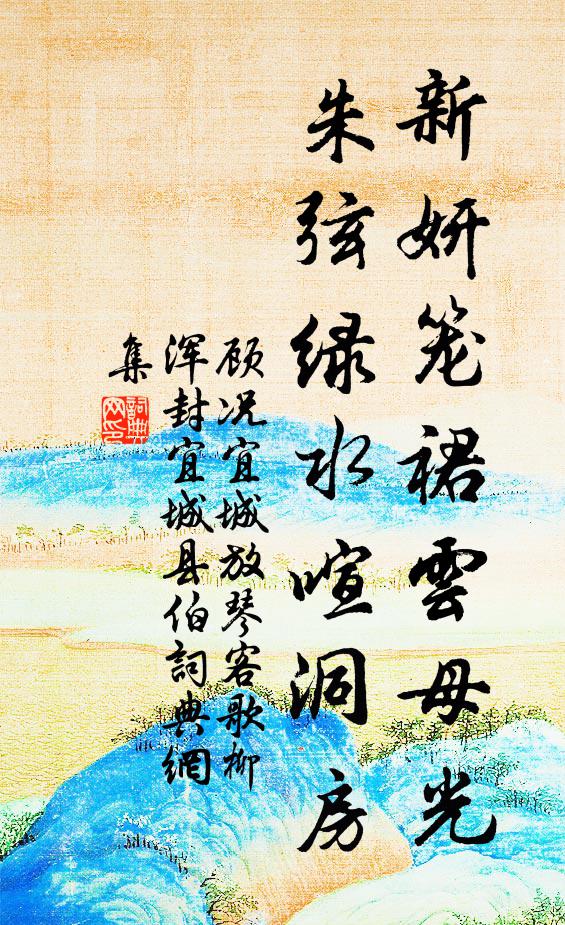 新妍笼裙雲母光
朱弦绿水喧洞房
顾况宜城放琴客歌柳
浑封宜城县伯詞典網
集
詞典
网印